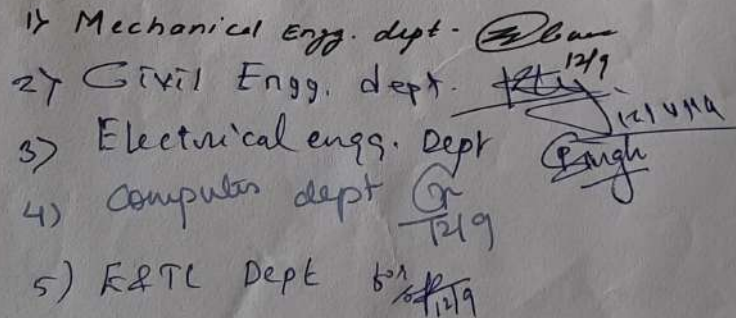 1) Mechanical Engg. dept.
2) Civil Engg. dept. 12/9
3) Electrical engg. Dept Singh
4) Computer dept 12/9
5) E&TC Dept for 12/9